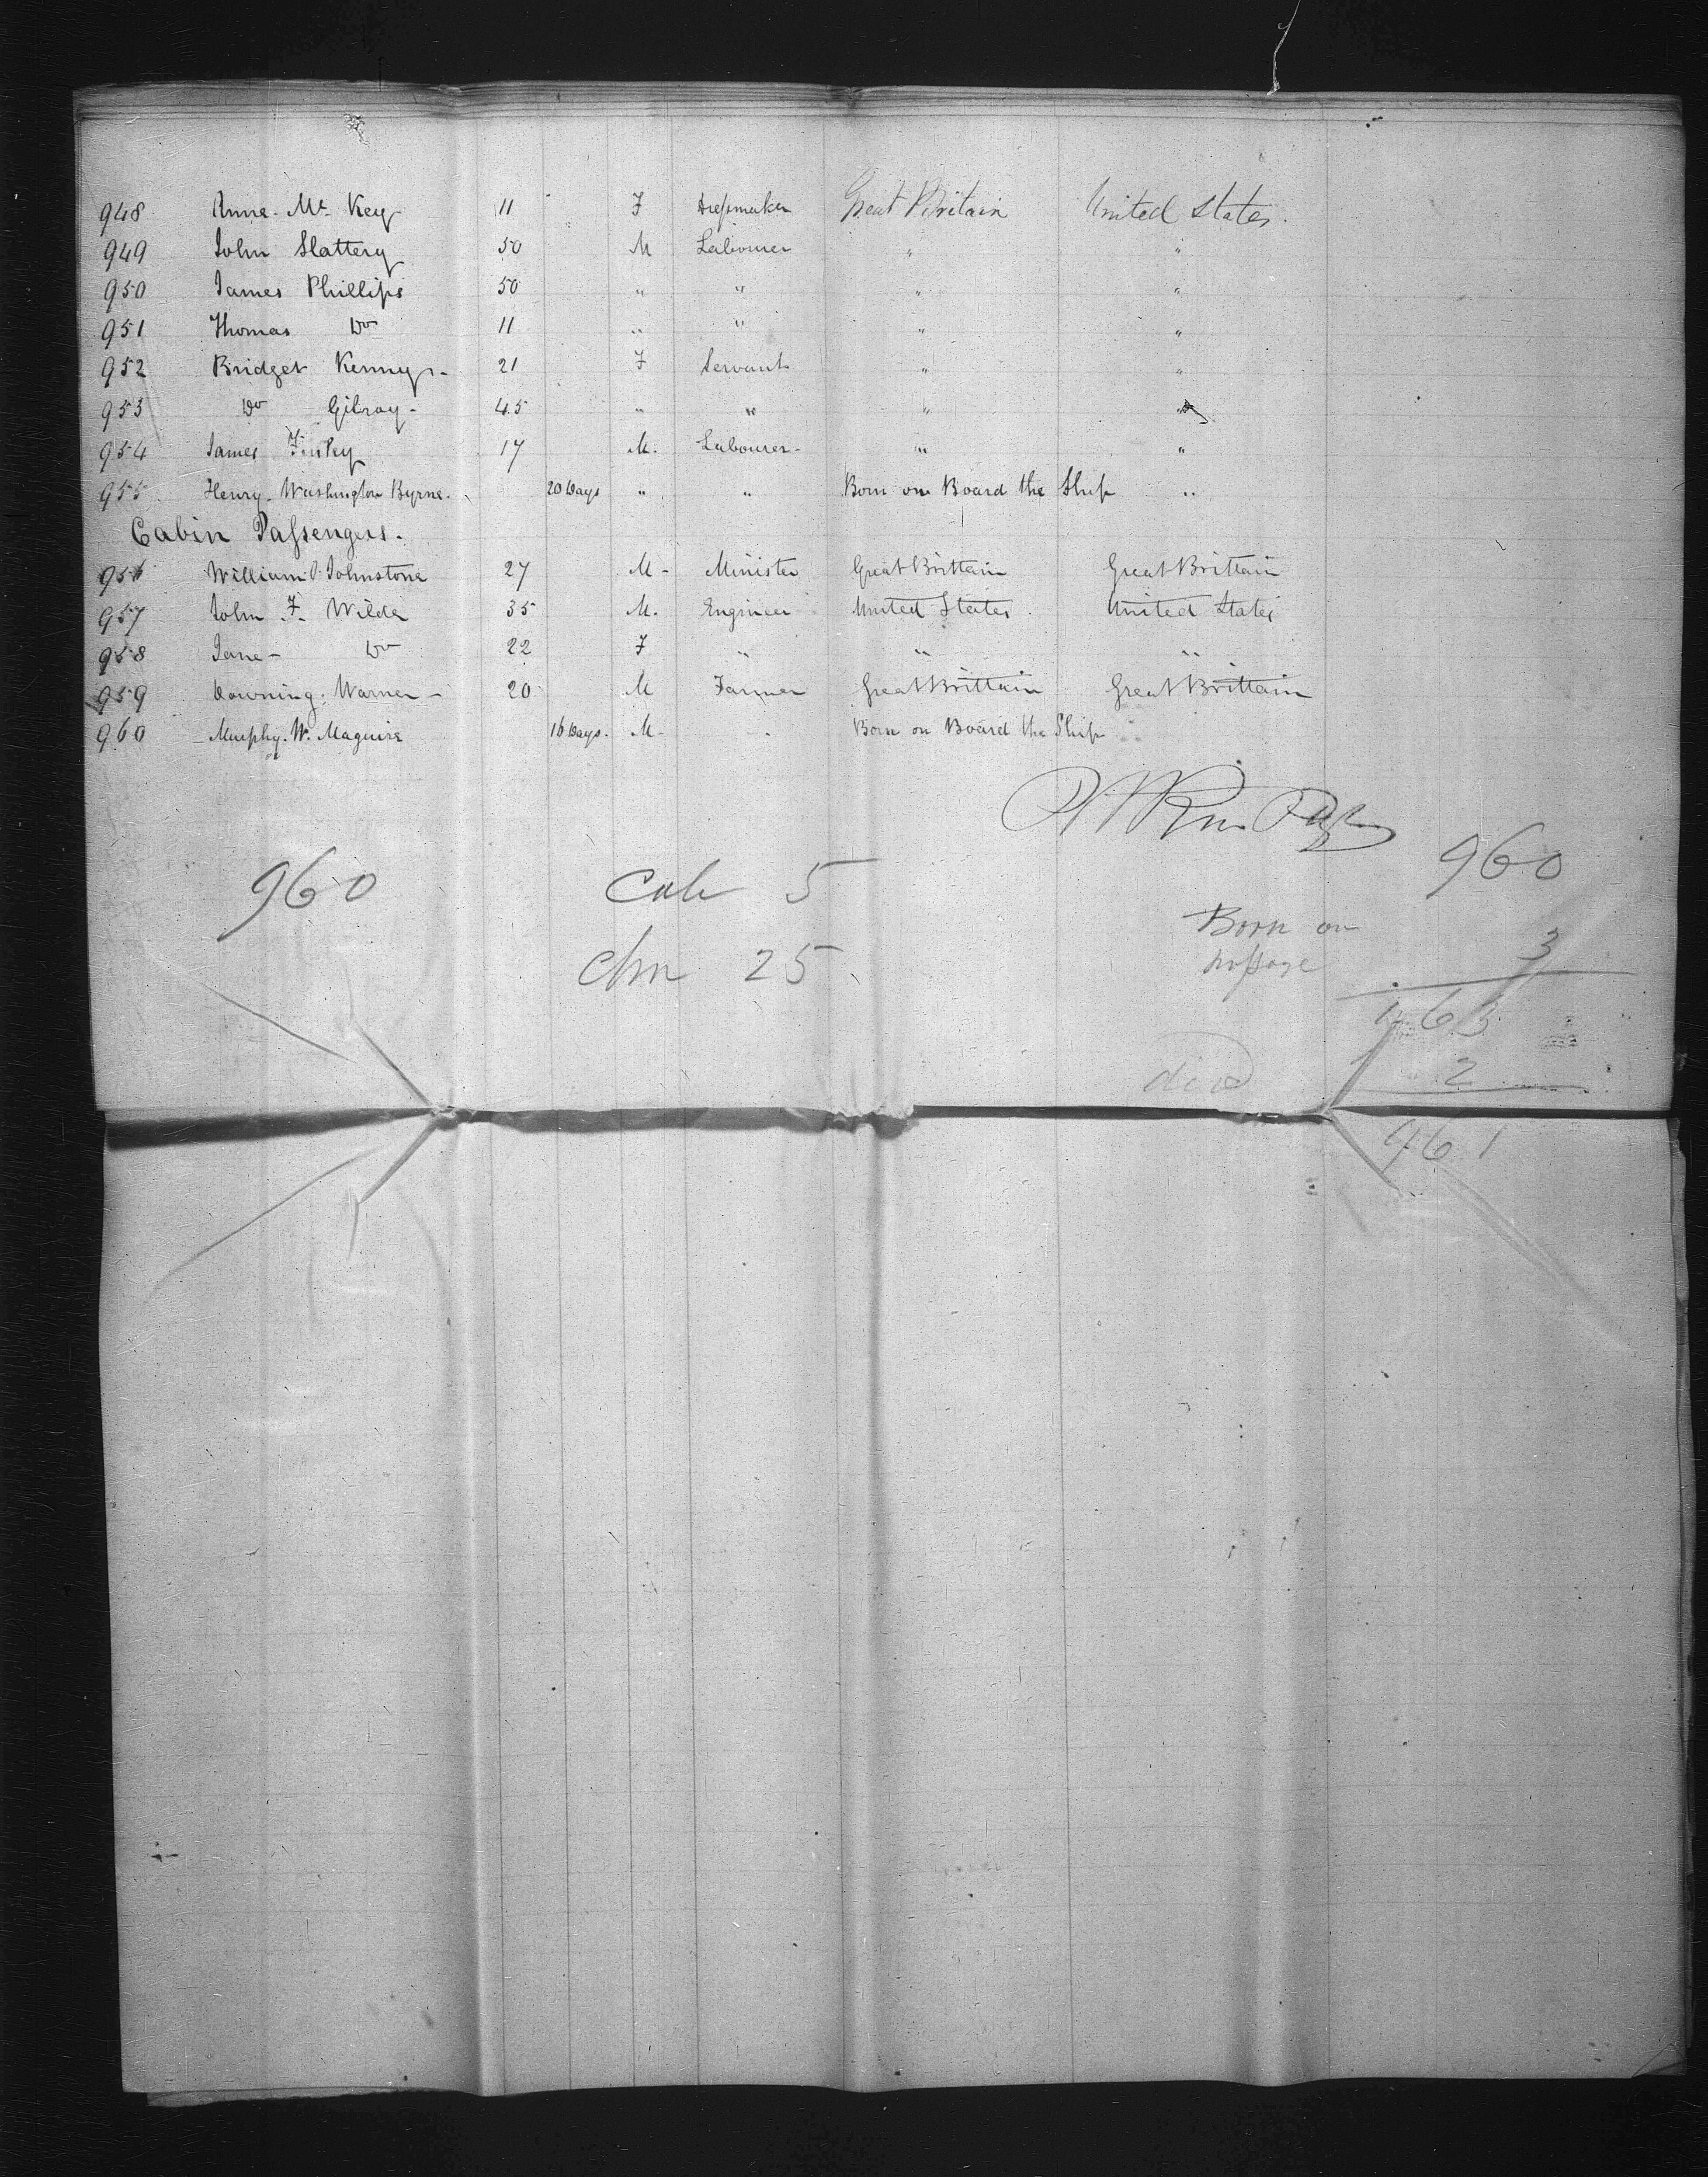 948 Anne Mc Key 11 F Dressmaker Great Britain United States.
949 John Slattery 50 M Labourer " "
950 James Phillips 50 " " " "
951 Thomas Do 11 " " " "
952 Bridget Kenny - 21 F Servant " "
953 Do Gilroy - 45 " " " "
954 James 17 M. Labourer - " "
955 Henry Washington Byrne - 20 Days " " Born on Board the Ship "
Cabin Passengers.
956 William Johnstone 27 M - Minister Great Brittain Great Brittain
957 John F. Wilde 35 M. Engineer United States United States
958 Jane - Do 22 F " " "
959 Downing Warner - 20 M Farmer Great Brittain Great Brittain
960 Murphy. W. Maguire 16 Days. M - Born on Board the Ship
960 Cab 5 960
Born on 3
chn 25 passage
963
died 2
961